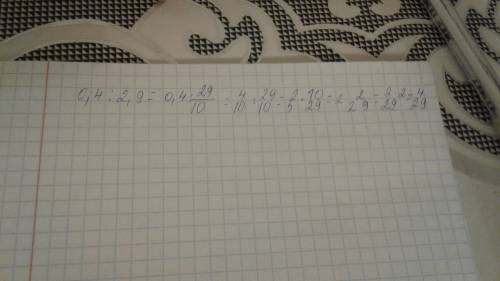 0,4 : 2,9 = 0,4 : 29/10 = 4/10 : 29/10 = 2/5 · 10/29 = 2 · 2/29 = 2/29 · 2 = 4/29